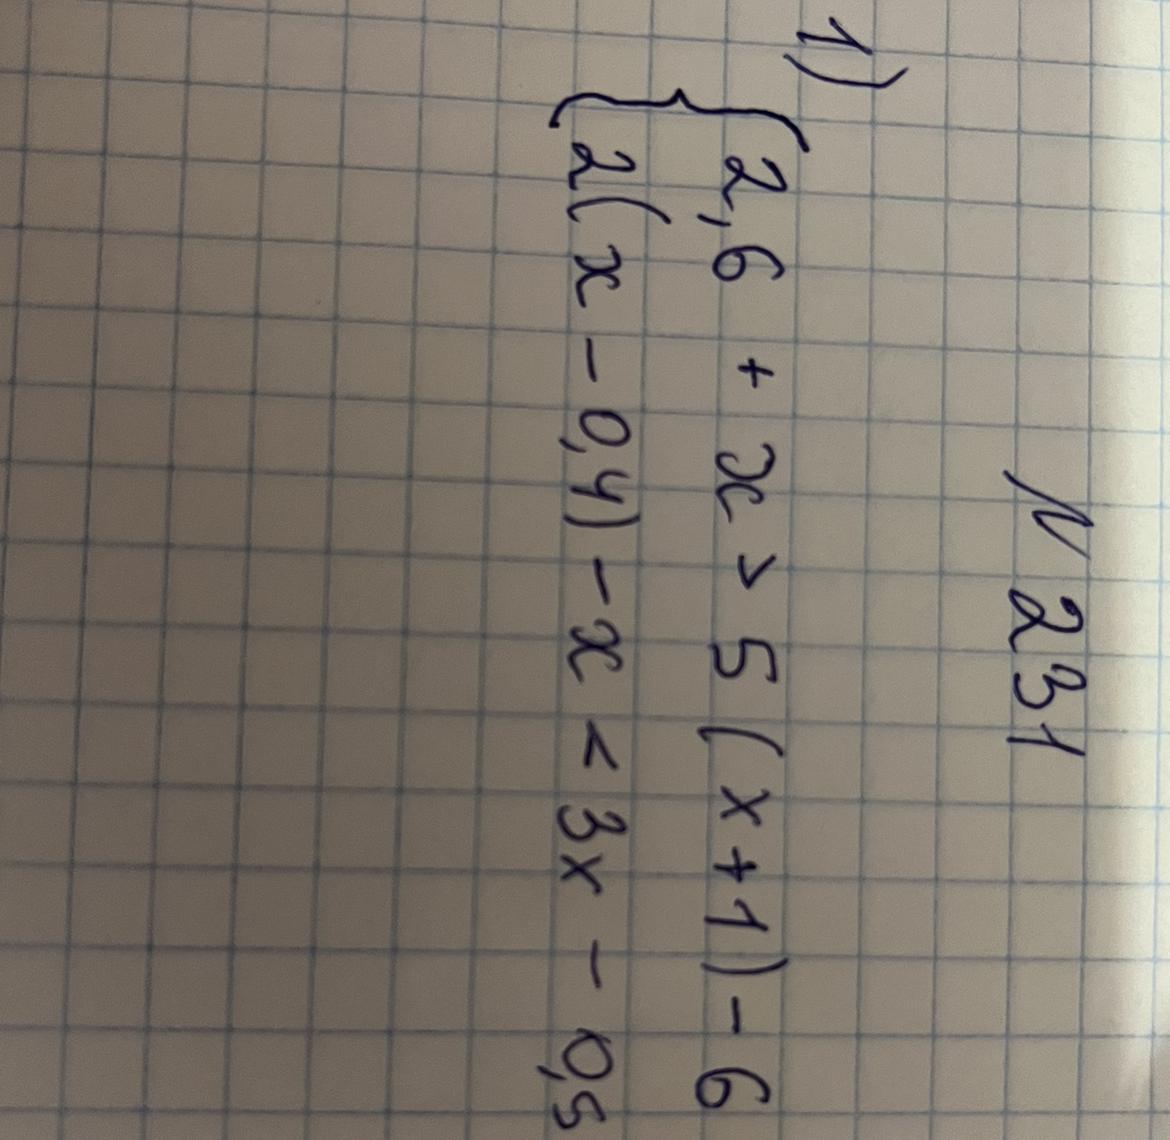 N 231
1)
{ 2,6 + x > 5 (x+1) - 6
2(x - 0,4) - x < 3x - 0,5